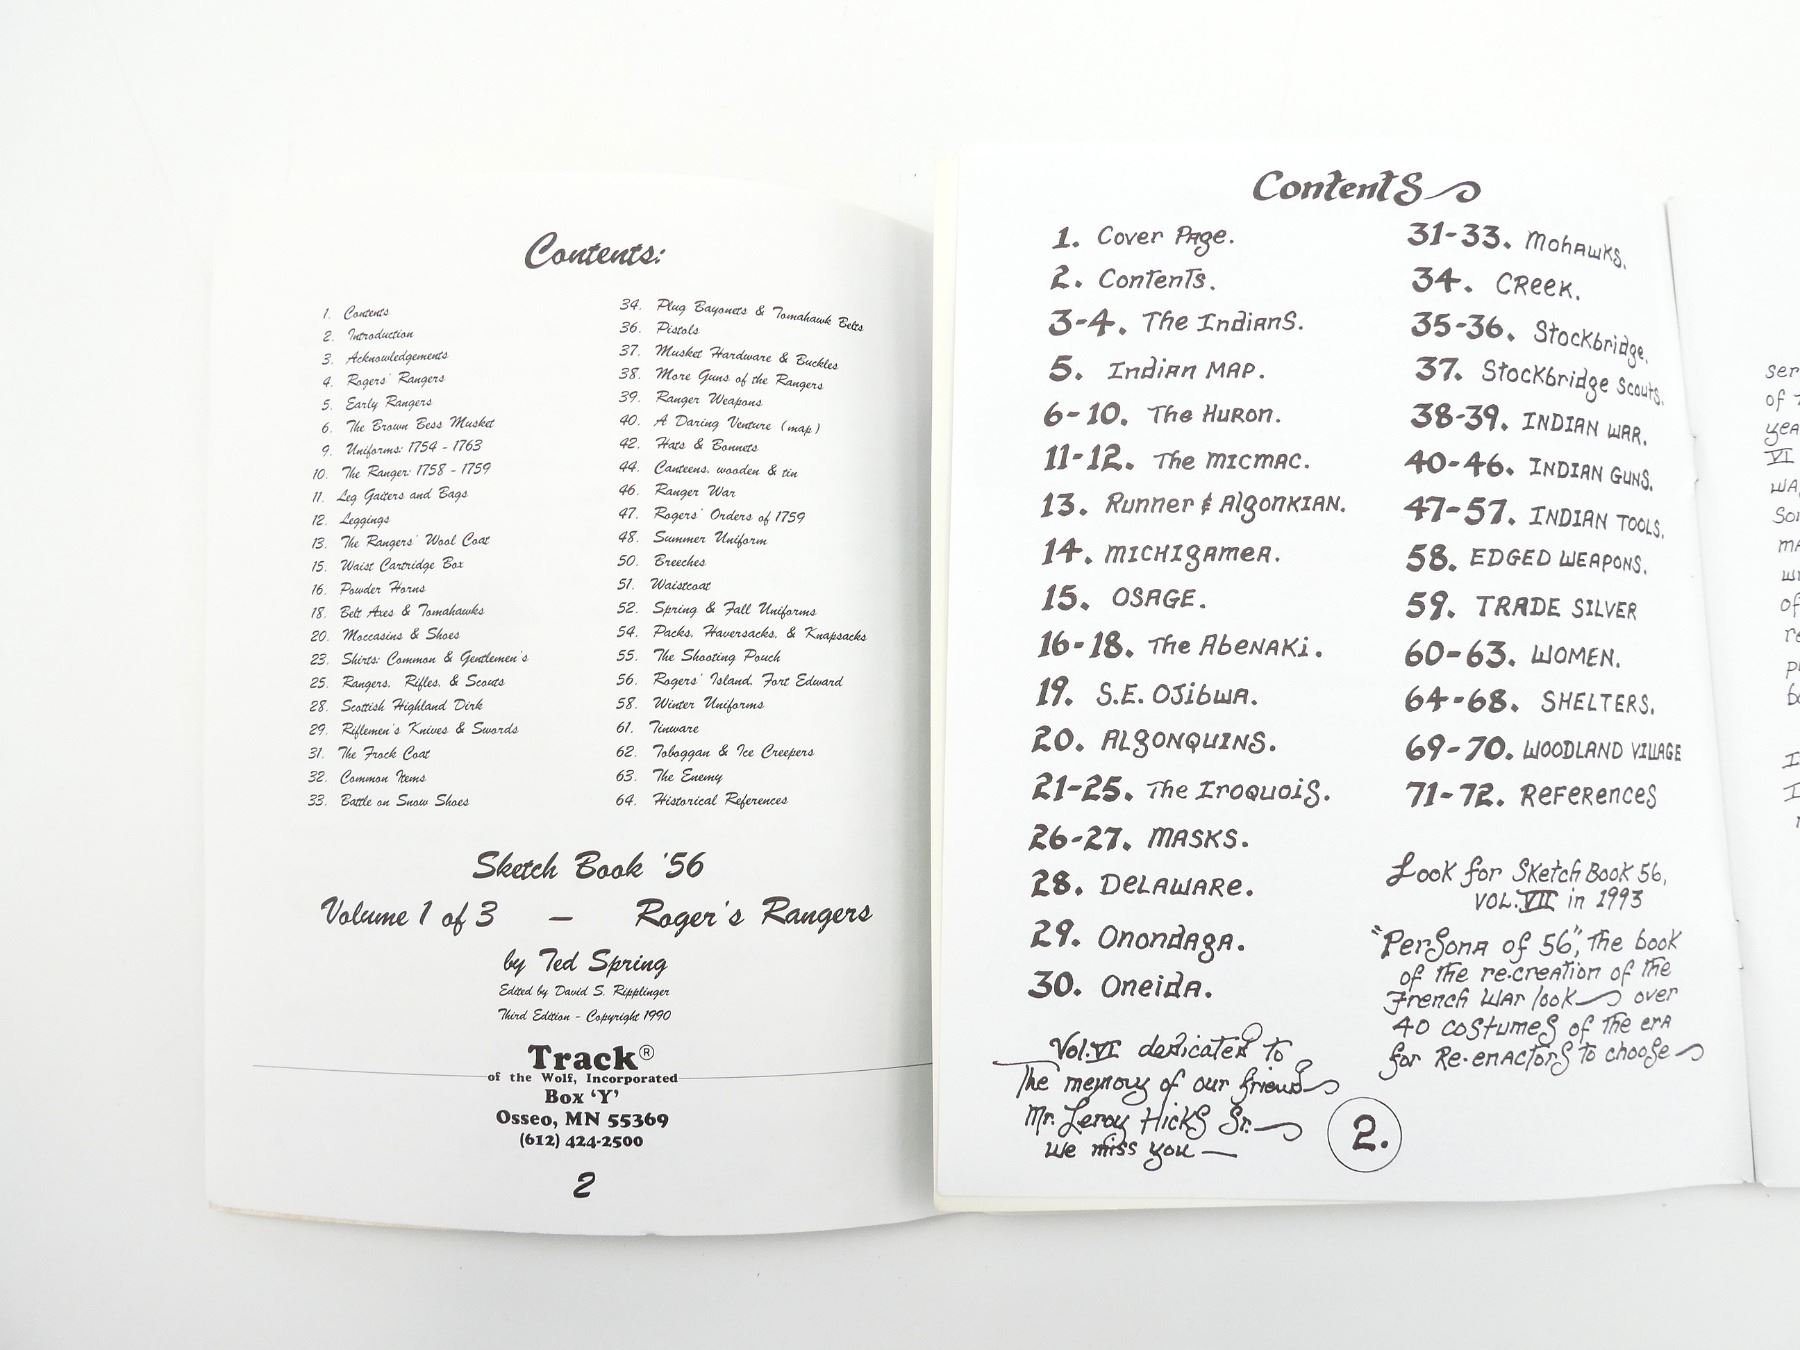 Contents:
1. Contents
2. Introduction
3. Acknowledgements
4. Rogers' Rangers
5. Early Rangers
6. The Brown Bess Musket
9. Uniforms: 1754 - 1763
10. The Ranger: 1758 - 1759
11. Leg Gaiters and Bags
12. Leggings
13. The Rangers' Wool Coat
15. Waist Cartridge Box
16. Powder Horns
18. Belt Axes & Tomahawks
20. Moccasins & Shoes
23. Shirts: Common & Gentlemen's
25. Rangers, Rifles, & Scouts
28. Scottish Highland Dirk
29. Riflemen's Knives & Swords
31. The Frock Coat
32. Common Items
33. Battle on Snow Shoes
34. Plug Bayonets & Tomahawk Belts
36. Pistols
37. Musket Hardware & Buckles
38. More Guns of the Rangers
39. Ranger Weapons
40. A Daring Venture (map)
42. Hats & Bonnets
44. Canteens, wooden & tin
46. Ranger War
47. Rogers' Orders of 1759
48. Summer Uniform
50. Breeches
51. Waistcoat
52. Spring & Fall Uniforms
54. Packs, Haversacks, & Knapsacks
55. The Shooting Pouch
56. Rogers' Island, Fort Edward
58. Winter Uniforms
61. Tinware
62. Toboggan & Ice Creepers
63. The Enemy
64. Historical References
Sketch Book '56
Volume 1 of 3 — Roger's Rangers
by Ted Spring
Edited by David S. Ripplinger
Third Edition - Copyright 1990
Track®
of the Wolf, Incorporated
Box 'Y'
Osseo, MN 55369
(612) 424-2500
2
Contents
1. Cover Page.
2. Contents.
3-4. The Indians.
5. Indian MAP.
6-10. The Huron.
11-12. The MICMAC.
13. Runner & Algonkian.
14. MICHIgamea.
15. OSAGE.
16-18. The Abenaki.
19. S.E. OJibwa.
20. ALgONQUINS.
21-25. The Iroquois.
26-27. MASKS.
28. DeLAWARe.
29. Onondaga.
30. Oneida.
31-33. Mohawks.
34. CReek.
35-36. Stockbridge.
37. Stockbridge Scouts.
38-39. INDIAN WAR.
40-46. INDIAN GUNS.
47-57. INDIAN TOOLS.
58. EDGED WEAPONS.
59. TRADE SILVER
60-63. WOMEN.
64-68. SHELTERS.
69-70. WOODLAND VILLAGE
71-72. ReFeRences
Look for Sketch Book 56,
VOL. VII in 1993
"Persona of 56", The book
of the re-creation of the
French War look over
40 costumes of the era
for Re-enactors to choose
Vol. VI dedicated to
The memory of our friend
Mr. Leroy Hicks Sr.
we miss you —
2.
of
VI
of